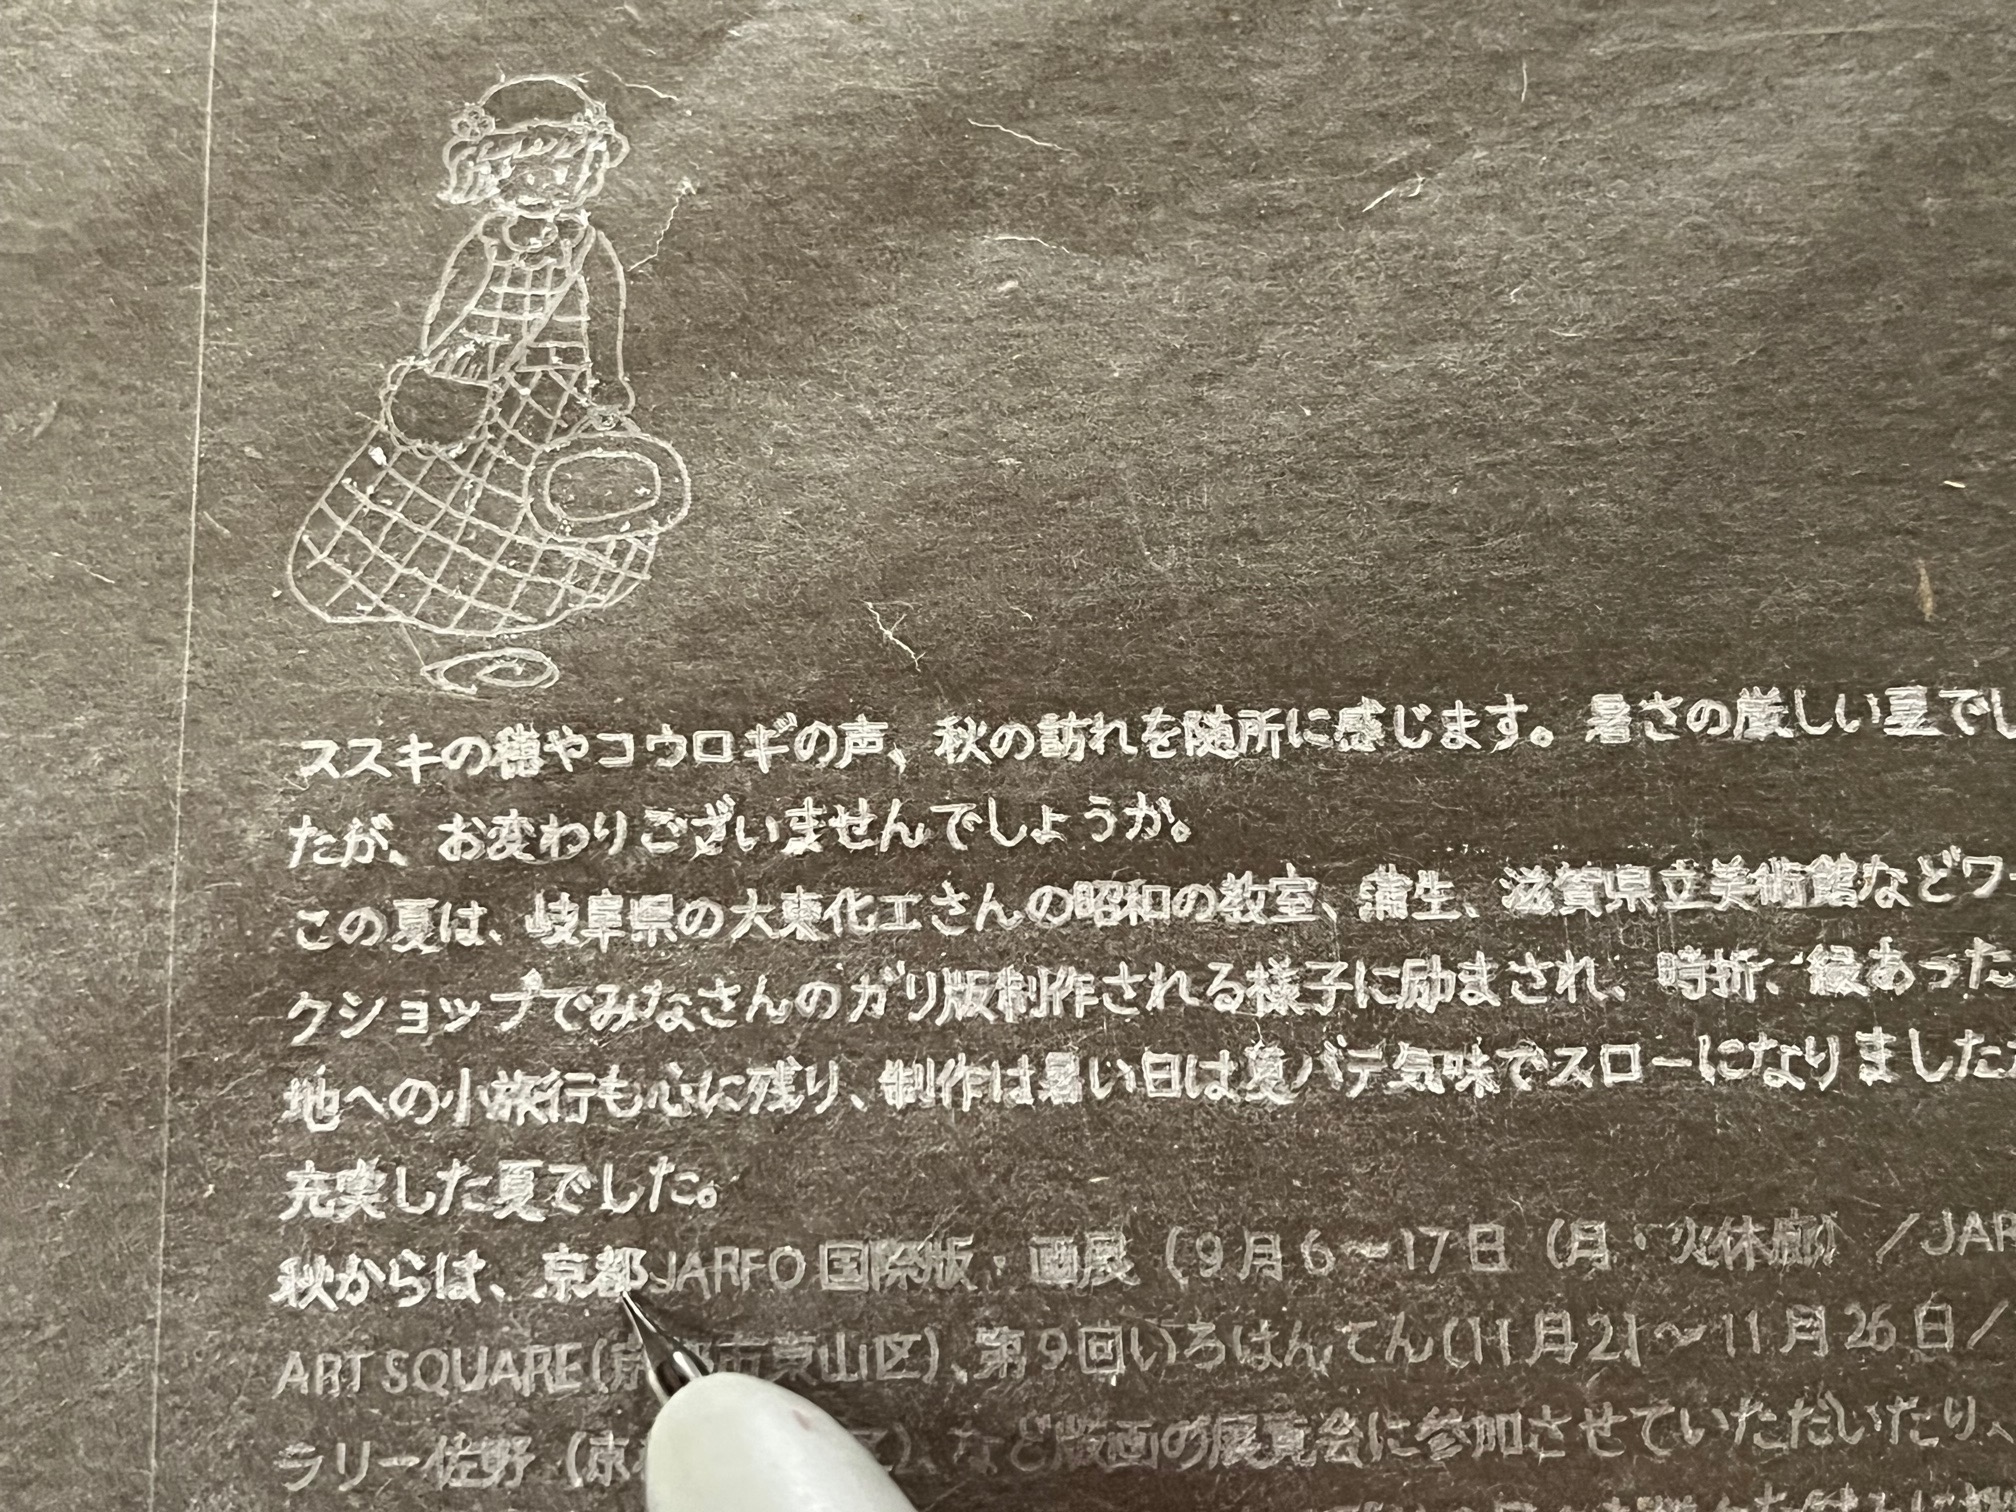 ススキの穂やコウロギの声、秋の訪れを随所に感じます。暑さの厳しい夏でし
たが、お変わりございませんでしょうか。
この夏は、岐阜県の大東化工さんの昭和の教室、蒲生、滋賀県立美術館などワー
クショップでみなさんのガリ版制作される様子に励まされ、時折、縁あった
地への小旅行も心に残り、制作は暑い日は夏バテ気味でスローになりました
充実した夏でした。
秋からは、京都JARFO国際版・画展（9月6～17日（月・火休廊）／JAR
ART SQUARE(京都市東山区)、第9回いろはんてん(11月21～11月26日／
ラリー佐野（京 )、など版画の展覧会に参加させていただいたり、